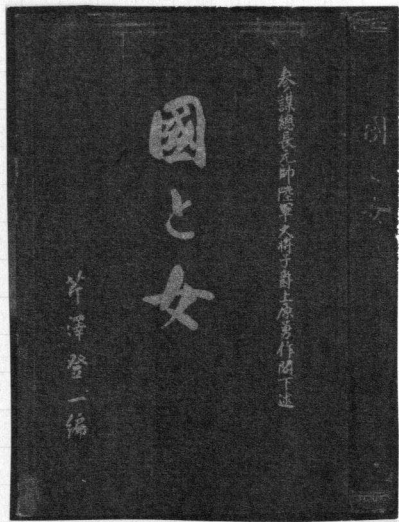 参謀總長元帥陸軍大將子爵上原勇作閣下述
國と女
芹澤登一編